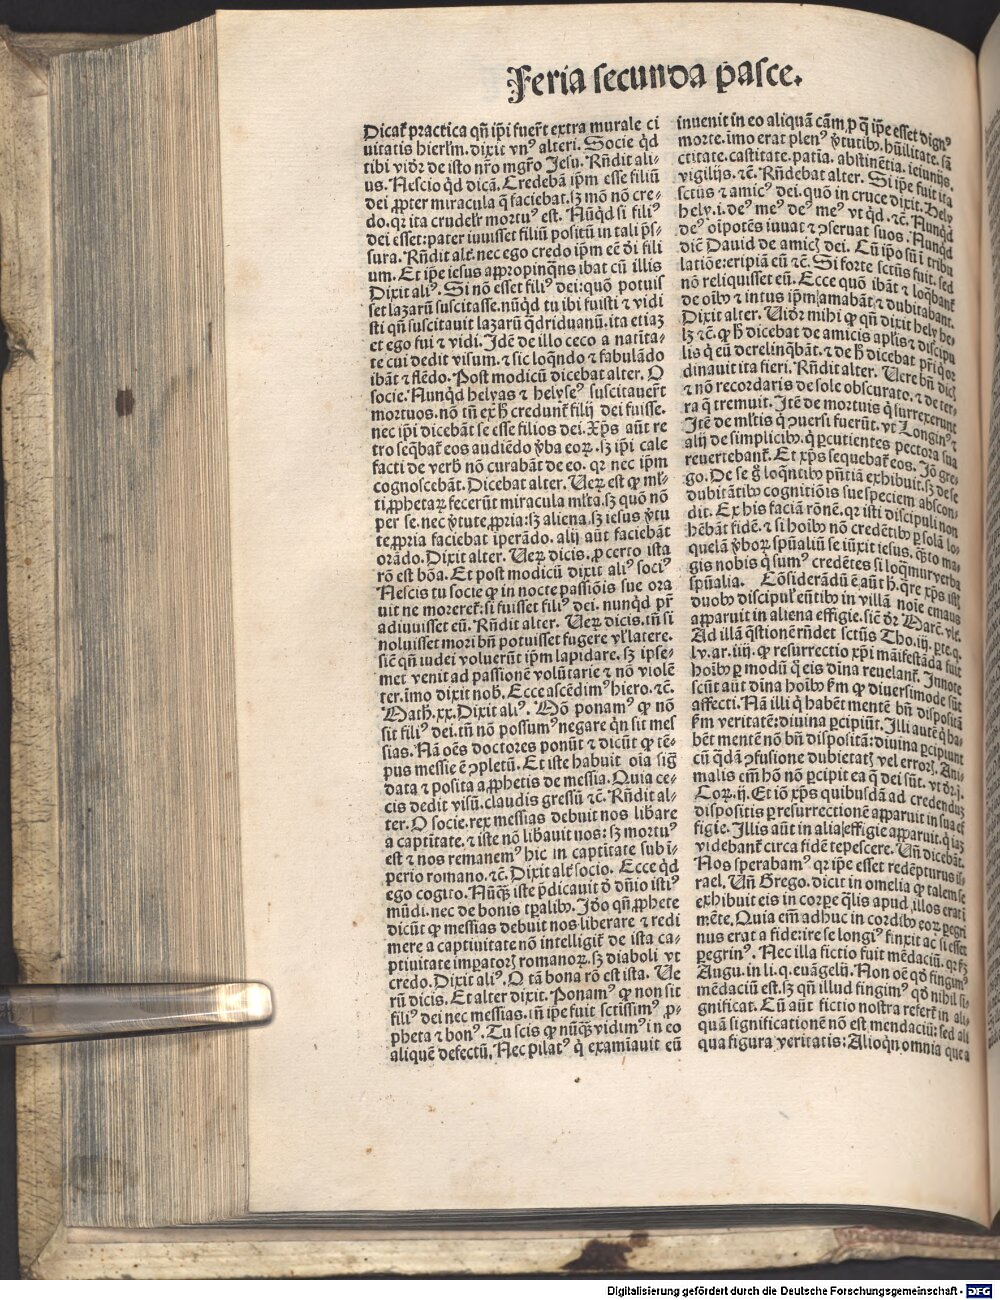 Feria secunda pasce.
Dicat᷑ practica qn̄ ip̄i fuer̄t extra murale ci
uitatis hierl̄m. dixit vnꝰ alteri. Socie qͥd
tibi vidr̄ de isto nr̄o mgr̄o Jesu. Rn̄dit ali-
us. Nescio qͥd dicā. Credebā ip̄m esse filiū
dei ꝓpter miracula q̄ faciebat. sꝫ mō nō cre-
do. qꝛ ita crudelr̄ mortuꝰ est. Nūqͥd si filiꝰ
dei esset: pater iuuisset filiū positū in tali p̄s-
sura. Rn̄dit alt̄. nec ego credo ip̄m eē d̄i fili
um. Et ip̄e iesus appropinqn̄s ibat cū illis
Dixit aliꝰ. Si nō esset filiꝰ dei: quō potuis
set lazarū suscitasse. nūqͥd tu ibi fuisti ⁊ vidi
sti qn̄ suscitauit lazarū qͣdriduanū. ita etiaꝫ
et ego fui ⁊ vidi. Idē de illo ceco a natiuita-
te cui dedit visum. ⁊ sic loqn̄do ⁊ fabulādo
ibāt ⁊ flēdo. Post modicū dicebat alter. O
socie. Nunqͥd helyas ⁊ helyseꝰ suscitauer̄t
mortuos. nō tn̄ ex h̄ credunt᷑ filij dei fuisse.
nec ip̄i dicebāt se esse filios dei. Xp̄s aūt re
tro seqͣbat᷑ eos audiēdo v̄ba eoꝝ. sꝫ ip̄i cale
facti de verb̄ nō curabāt de eo. qꝛ nec ip̄m
cognoscebāt. Dicebat alter. Ueꝝ est ꝙ ml̄-
ti ꝓphetaꝝ fecerūt miracula ml̄ta. sꝫ quō nō
per se. nec v̄tute ꝓpria: sꝫ aliena. sꝫ iesus v̄tu
te ꝓpria faciebat iꝑando. alij aūt faciebāt
orādo. Dixit alter. Ueꝝ dicis. ꝓ certo ista
rō est bōa. Et post modicū dixit aliꝰ sociꝰ
Nescis tu socie ꝙ in nocte passiōis sue ora
uit ne moreret᷑: si fuisset filiꝰ dei. nunqͥd pr̄
adiuuisset eū. Rn̄dit alter. Ueꝝ dicis. tn̄ si
noluisset mori bn̄ potuisset fugere vl̓ latere.
sic̄ qn̄ iudei voluerūt ip̄m lapidare. sꝫ ipse-
met venit ad passionē volūtarie ⁊ nō violē
ter. imo dixit nob̄. Ecce ascēdimꝰ hiero. ⁊c̄.
Math̄. xx. Dixit aliꝰ. Mō ponamꝰ ꝙ nō
sit filiꝰ dei. tn̄ nō possumꝰ negare qͥn sit mes
sias. Nā oēs doctores ponūt ⁊ dicūt ꝙ tē-
pus messie ē ꝯpletū. Et iste habuit oīa siḡ
data ⁊ posita a ꝓphetis de messia. Quia ce-
cis dedit visū. claudis gressū ⁊c̄. Rn̄dit al-
ter. O socie. rex messias debuit nos lib̄are
a captītate. ⁊ iste nō lib̄auit nos: sꝫ mortuꝰ
est ⁊ nos remanemꝰ hic in captītate sub ī-
perio romano. ⁊c̄. Dixit alt̄ socio. Ecce qͥd
ego cogito. Nūqͣꝫ iste p̄dicauit d̄ dn̄io istiꝰ
mūdi. nec de bonis tꝑalibꝰ. Id̄o qn̄ ꝓphete
dicūt ꝙ messias debuit nos liberare ⁊ redi
mere a captiuitate nō intelligit᷑ de ista ca-
ptiuitate imꝑatoꝝ romanoꝝ. sꝫ diaboli vt
credo. Dixit aliꝰ. O tā bona rō est ista. Ue
rū dicis. Et alter dixit. Ponamꝰ ꝙ non sit
filiꝰ dei nec messias. tn̄ ip̄e fuit sctīssimꝰ ꝓ-
pheta ⁊ bonꝰ. Tu scis ꝙ nūqͣꝫ vidimꝰ in eo
aliquē defectū. Nec pilatꝰ qͥ examīauit eū
inuenit in eo aliquā cām, ꝓ qͣ ip̄e esset dignꝰ
morte. imo erat plenꝰ v̄tutibꝰ. hūilitate. sā
ctitate. castitate. patīa. abstinētia. ieiunijs.
vigilijs. ⁊c̄. Rn̄debat alter. Si ip̄e fuit ita
sctūs ⁊ amicꝰ dei. quō in cruce dixit. Hely
hely. i. deꝰ meꝰ deꝰ meꝰ vt qͥd. ⁊c̄. Nunqͥd
deꝰ oīpotēs iuuat ⁊ ꝯseruat suos. Nunqͥd
dic̄ Dauid de amicꝭ dei. Cū ip̄o sū ī tribu
latiōe: eripiā eū ⁊c̄. Si forte sctūs fuit. sed
nō reliquisset eū. Ecce quō ibāt ⁊ loqͣbant᷑
de oībꝰ ⁊ intus ip̄m amabāt ⁊ dubitabant.
Dixit alter. Uidr̄ mihi ꝙ qn̄ dixit hely he-
lꝫ ⁊c̄. ꝙ h̄ dicebat de amicis apl̄is ⁊ discipu
lis qͥ eū derelinqͣbāt. ⁊ de h̄ dicebat pr̄i qͥ or
dinauit ita fieri. Rn̄dit alter. Uere bn̄ dicꝭ
⁊ nō recordaris de sole obscurato. ⁊ de ter-
ra q̄ tremuit. Itē de mortuis qͥ surrexerunt
Itē de ml̄tis qͥ ꝯuersi fuerūt. vt Longinꝰ ⁊
alij de simplicibꝰ. qͥ ꝑcutientes pectora sua
reuertebant᷑. Et xp̄s sequebat᷑ eos. Iō gre-
go. De se g̊ loqn̄tibꝰ p̄ntiā exhibuit. sꝫ de se
dubitātibꝰ cognitiōis sue speciem abscon-
dit. Ex his faciā rōnē. qꝛ isti discipuli non
hēbāt fidē. ⁊ si hoībꝰ nō credētibꝰ ꝑ solā lo-
quelā v̄boꝝ spūaliū se iūxit iesus. qͣnto ma-
gis nobis qͥ sumꝰ credētes si loqͣmur verba
spūalia. Cōsiderādū ē aūt h̄. qͣre xp̄s istꝭ
duobꝰ discipul̓ eūtibꝰ in villā noīe emaus
apparuit in aliena effigie. sic̄ dr̄ Marc̄. vlt̄.
Ad illā qͣstionē rn̄det sctūs Tho. iij. ꝑte. q.
lv. ar. iiij. ꝙ resurrectio xp̄i māifestāda fuit
hoībꝰ ꝑ modū qͥ eis dīna reuelant᷑. Innote
scūt aūt dīna hoībꝰ ẜm ꝙ diuersimode sūt
affecti. Nā illi qͥ habēt mentē bn̄ dispositā
ẜm veritatē: diuina ꝑcipiūt. Illi autē qͥ ha-
bēt mentē nō bn̄ dispositā: diuina ꝑcipiunt
cū qͣdā ꝯfusione dubietatꝭ vel erroꝝ. Ani-
malis em̄ hō nō ꝑcipit ea q̄ dei sūt. vt dr̄. j.
Coꝝ. ij. Et iō xp̄s quibusdā ad credenduꝫ
dispositis ꝑ resurrectionē apparuit in sua ef
figie. Illis aūt in alia effigie apparuit. qͥ iaꝫ
videbant᷑ circa fidē tepescere. Un̄ dicebāt.
Nos sperabamꝰ qꝛ ip̄e esset redēpturus is-
rael. Un̄ Grego. dicit in omelia ꝙ talem se
exhibuit eis in corꝑe qͣlis apud illos erat ī
mēte. Quia em̄ adhuc in cordibꝰ eoꝝ ꝑegri
nus erat a fide: ire se longiꝰ finxit ac si esset
ꝑegrinꝰ. Nec illa fictio fuit mēdaciū. qꝛ ẜꝫ
Augu. in li. q. euāgelij. Non oē qͦd fingimꝰ
mēdaciū est. sꝫ qn̄ illud fingimꝰ qͦd nihil si-
gnificat. Cū aūt fictio nostra refert᷑ in ali-
quā significationē nō est mendaciū: sed ali
qua figura veritatis: Alioqn̄ omnia que a
Digitalisierung gefördert durch die Deutsche Forschungsgemeinschaft - DFG